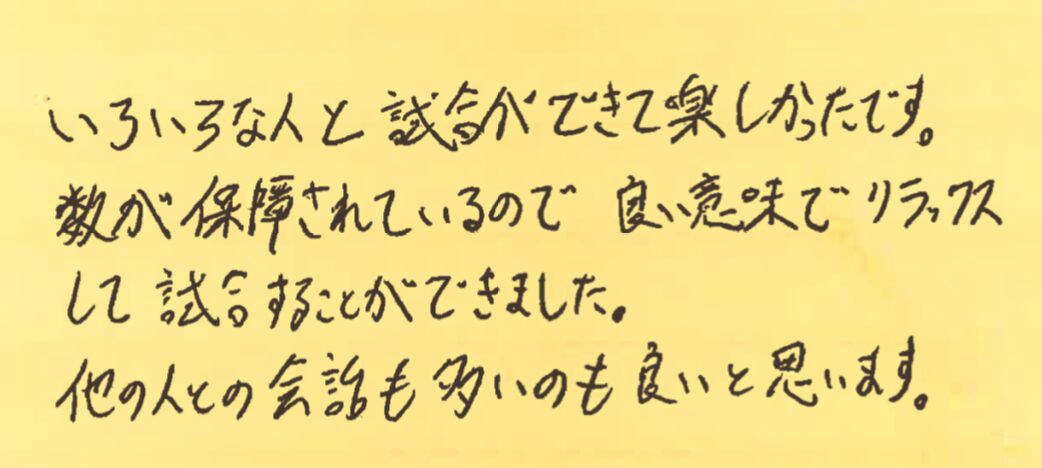 いろいろな人と試合ができて楽しかったです。
数が保障されているので良い意味でリラックス
して試合することができました。
他の人との会話も多いのも良いと思います。